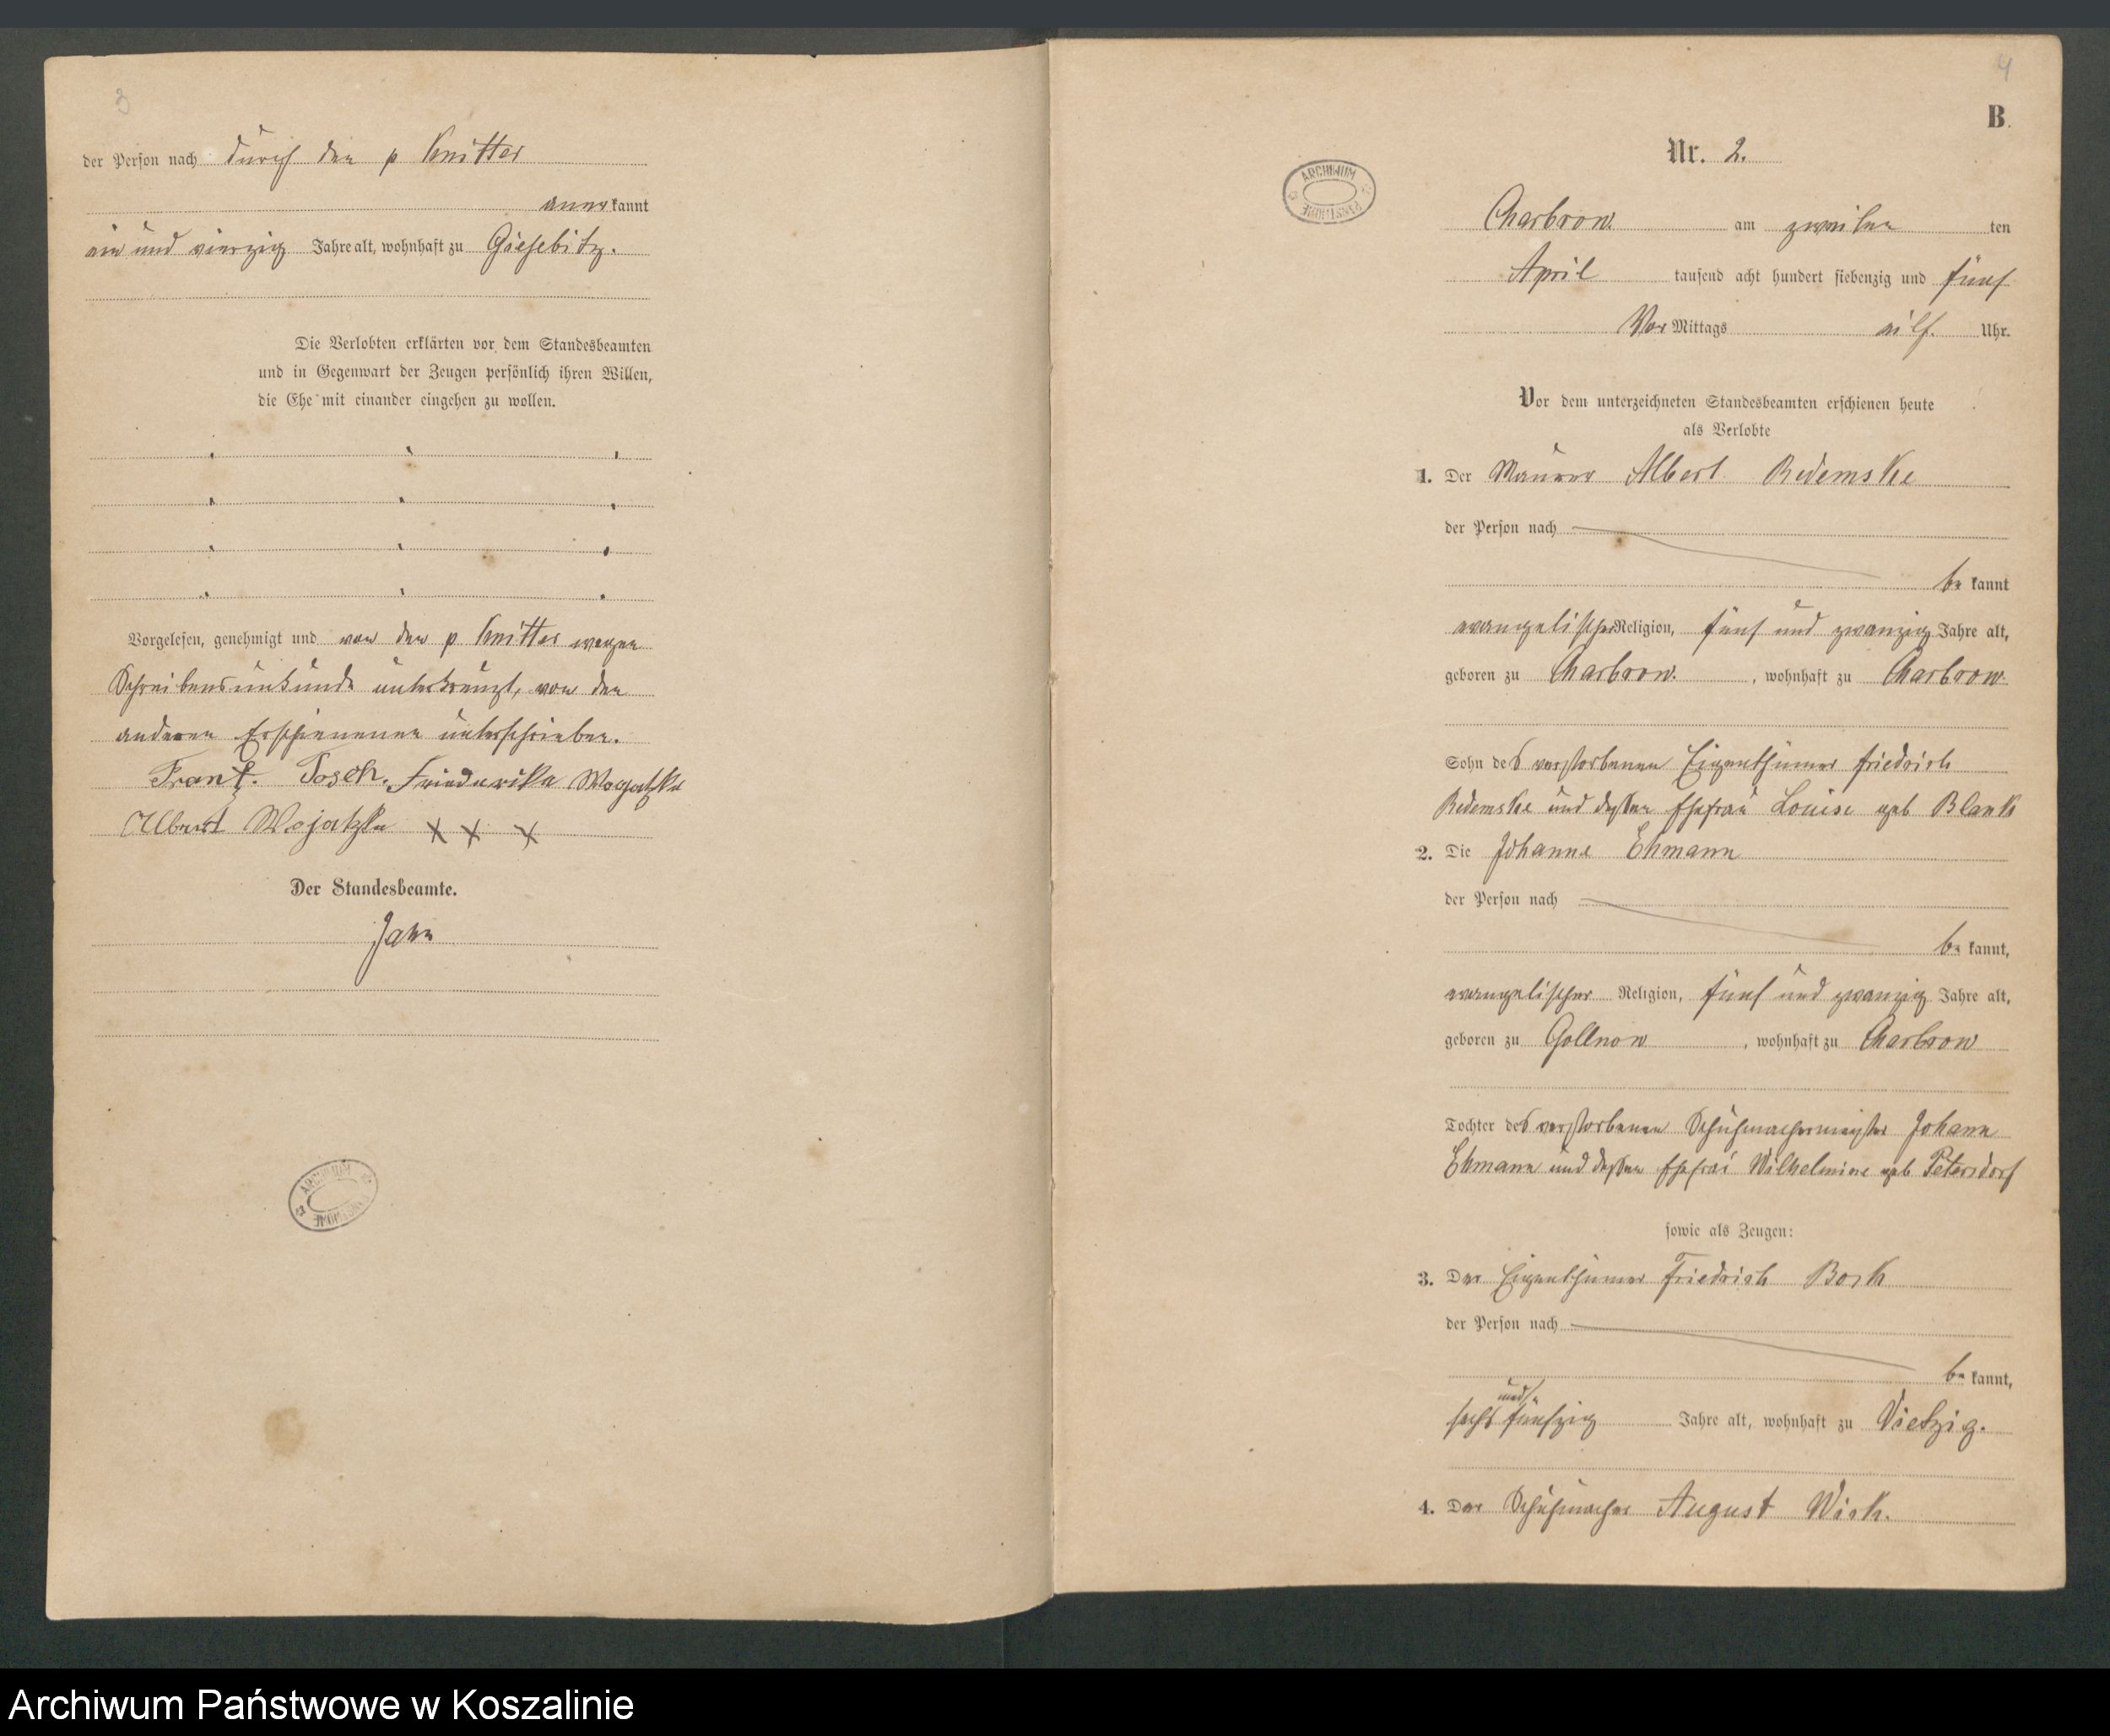 3
der Person nach durch den p Knitter
aner kannt
ein und vierzig Jahre alt, wohnhaft zu Giesebitz.
Die Verlobten erklärten vor dem Standesbeamten
und in Gegenwart der Zeugen persönlich ihren Willen,
die Ehe mit einander eingehen zu wollen.
Vorgelesen, genehmigt und von dem p Knitter wegen
Schreibensunkunde unterkreuzt, von den
anderen Erschienenen unterschrieben.
Frantz. Posch. Friederika Wogatzke
Albert Wojatzke XXX
Der Standesbeamte.
Jahn
ARCHIWUM PAŃSTWOWE
4
B.
Nr. 2.
ARCHIWUM PAŃSTWOWE
Charbrow. am zweiten ten
April tausend acht hundert siebenzig und fünf
Vor Mittags eilf. Uhr.
Vor dem unterzeichneten Standesbeamten erschienen heute
als Verlobte
1. Der Maurer Albert Redemske
der Person nach
be kannt
evangelischer Religion, fünf und zwanzig Jahre alt,
geboren zu Charbrow. , wohnhaft zu Charbrow.
Sohn des verstorbenen Eigenthümer Friedrich
Redemske und dessen Ehefrau Louise geb Blank
2. Die Johanne Ehmann
der Person nach
be kannt,
evangelischer Religion, fünf und zwanzig Jahre alt,
geboren zu Gollnow , wohnhaft zu Charbrow
Tochter des verstorbenen Schuhmachermeister Johann
Ehmann und dessen Ehefrau Wilhelmine geb Petersdorf
sowie als Zeugen:
3. Der Eigenthümer Friedrich Bork
der Person nach
be kannt,
sechs und fünfzig Jahre alt, wohnhaft zu Vietzig.
4. Der Schuhmacher August Wick.
Archiwum Państwowe w Koszalinie